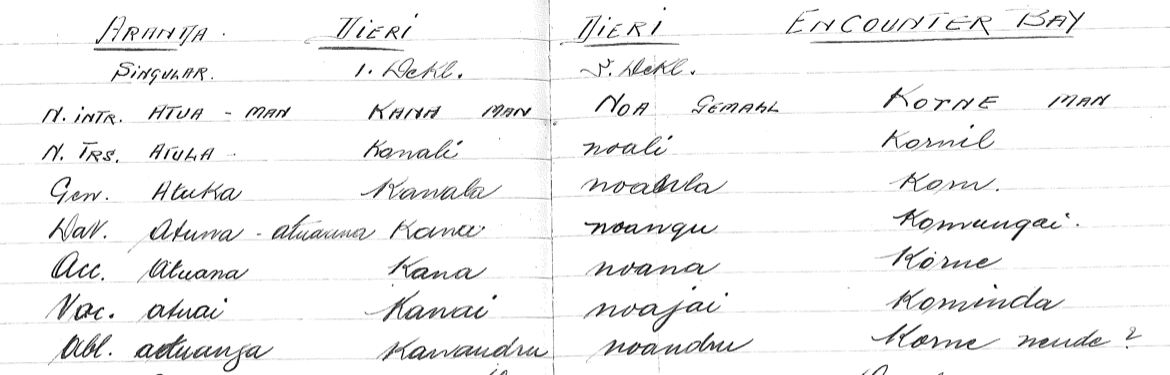 ARANDA. DIERI DIERI ENCOUNTER BAY
SINGULAR. 1. Dekl. 2. Dekl.
N. INTR. ATUA - MAN KANA MAN NOA GEMAHL KORNE MAN
N. TRS. ATULA - Kanali noali Kornil
Gen. Atuka Kanala Korn.
Dat. Atuna - atuauna noangu Kornungai.
Acc. Atuana Kana noana Korne
Voc. atuai Kanai noajai Korninda
Abl. atuanga Kanandru noandru Korne nende?